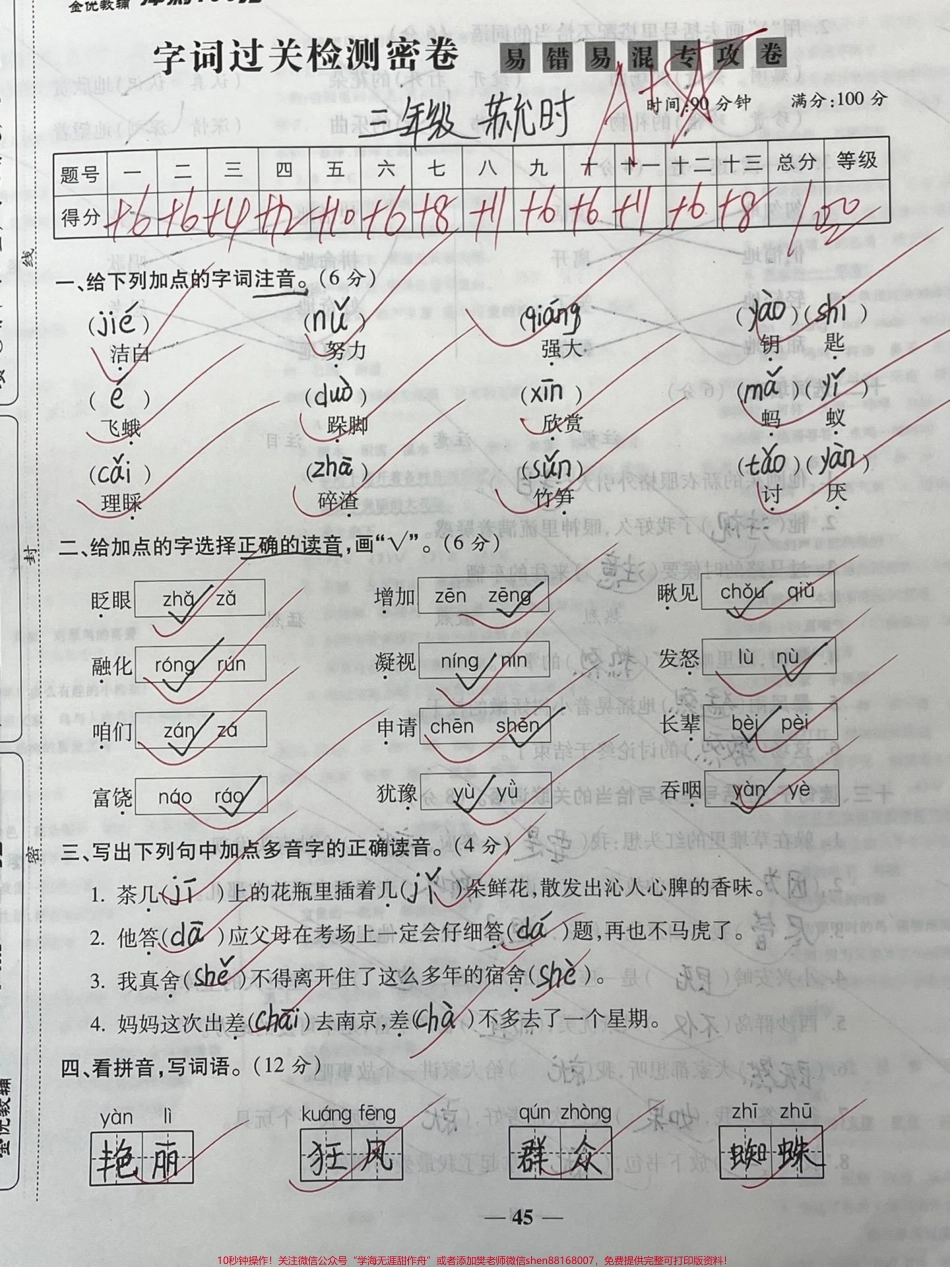 金优教辅
字词过关检测密卷 易错易混专攻卷
A+
年级 苏允时 时间:90分钟 满分:100分
题号 一 二 三 四 五 六 七 八 九 十 十一 十二 十三 总分 等级
得分 +6 +6 +4 +12 +10 +6 +8 +11 +6 +6 +11 +6 +8 100
一、给下列加点的字词注音。(6分)
(jié) (nǔ) (qiáng) (yào)(shi)
洁白 努力 强大 钥 匙
(é) (duò) (xīn) (mǎ)(yǐ)
飞蛾 跺脚 欣赏 蚂 蚁
(cǎi) (zhā) (sǔn) (tǎo)(yàn)
理睬 碎渣 竹笋 讨 厌
二、给加点的字选择正确的读音,画“√”。(6分)
眨眼 zhǎ√ zǎ 增加 zēn zēng√ 瞅见 chǒu√ qiǔ
融化 róng√ rún 凝视 níng√ nín 发怒 lù nù√
咱们 zán√ zá 申请 chēn shēn√ 长辈 bèi√ pèi
富饶 náo ráo√ 犹豫 yù√ yǜ 吞咽 yàn√ yè
三、写出下列句中加点多音字的正确读音。(4分)
1. 茶几(jī)上的花瓶里插着几(jǐ)朵鲜花,散发出沁人心脾的香味。
2. 他答(dā)应父母在考场上一定会仔细答(dá)题,再也不马虎了。
3. 我真舍(shě)不得离开住了这么多年的宿舍(shè)。
4. 妈妈这次出差(chāi)去南京,差(chà)不多去了一个星期。
四、看拼音,写词语。(12分)
yàn lì kuáng fēng qún zhòng zhī zhū
艳丽 狂风 群众 蜘蛛
— 45 —
线
封
密
金优教辅
10秒钟操作！关注微信公众号“学海无涯甜作舟”或者添加樊老师微信shen88168007，免费提供完整可打印版资料！